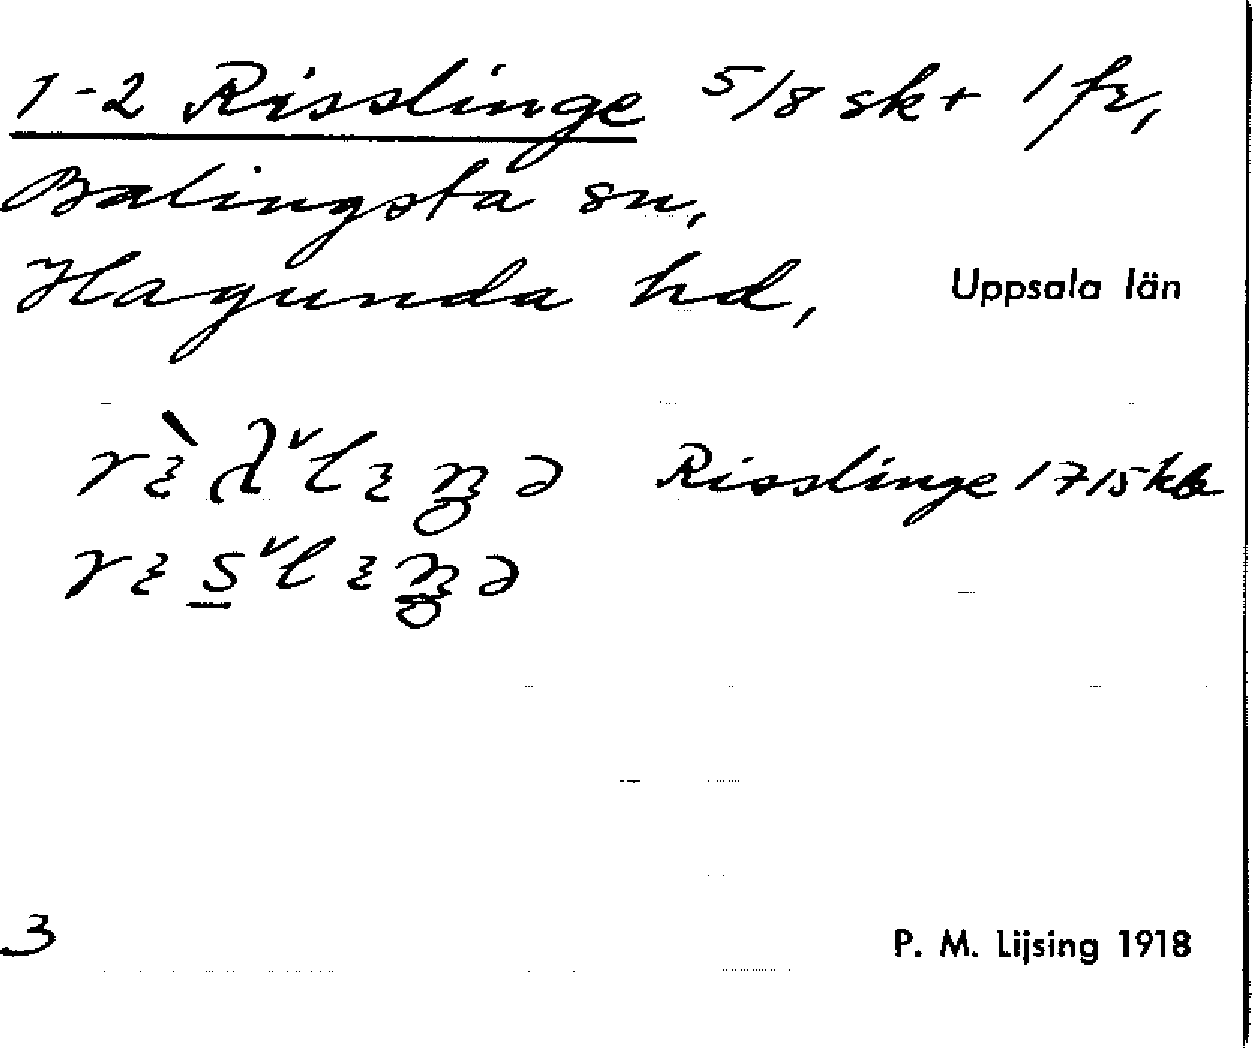 1-2 Risslinge 5/8 sk + 1 fr,
Balingsta sn,
Hagunda hd, Uppsala län
Risslinge 1715
3
P. M. Lijsing 1918